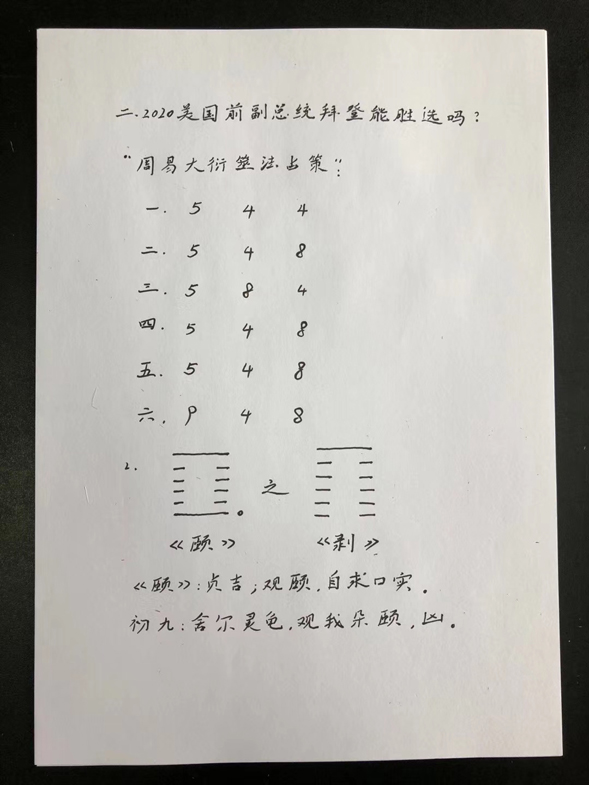 二.2020美国前副总统拜登能胜选吗?
"周易大衍筮法占策":
一. 5 4 4
二. 5 4 8
三. 5 8 4
四. 5 4 8
五. 5 4 8
六. 9 4 8
2. 之
《颐》 《剥》
《颐》:贞吉;观颐,自求口实。
初九:舍尔灵龟,观我朵颐,凶。